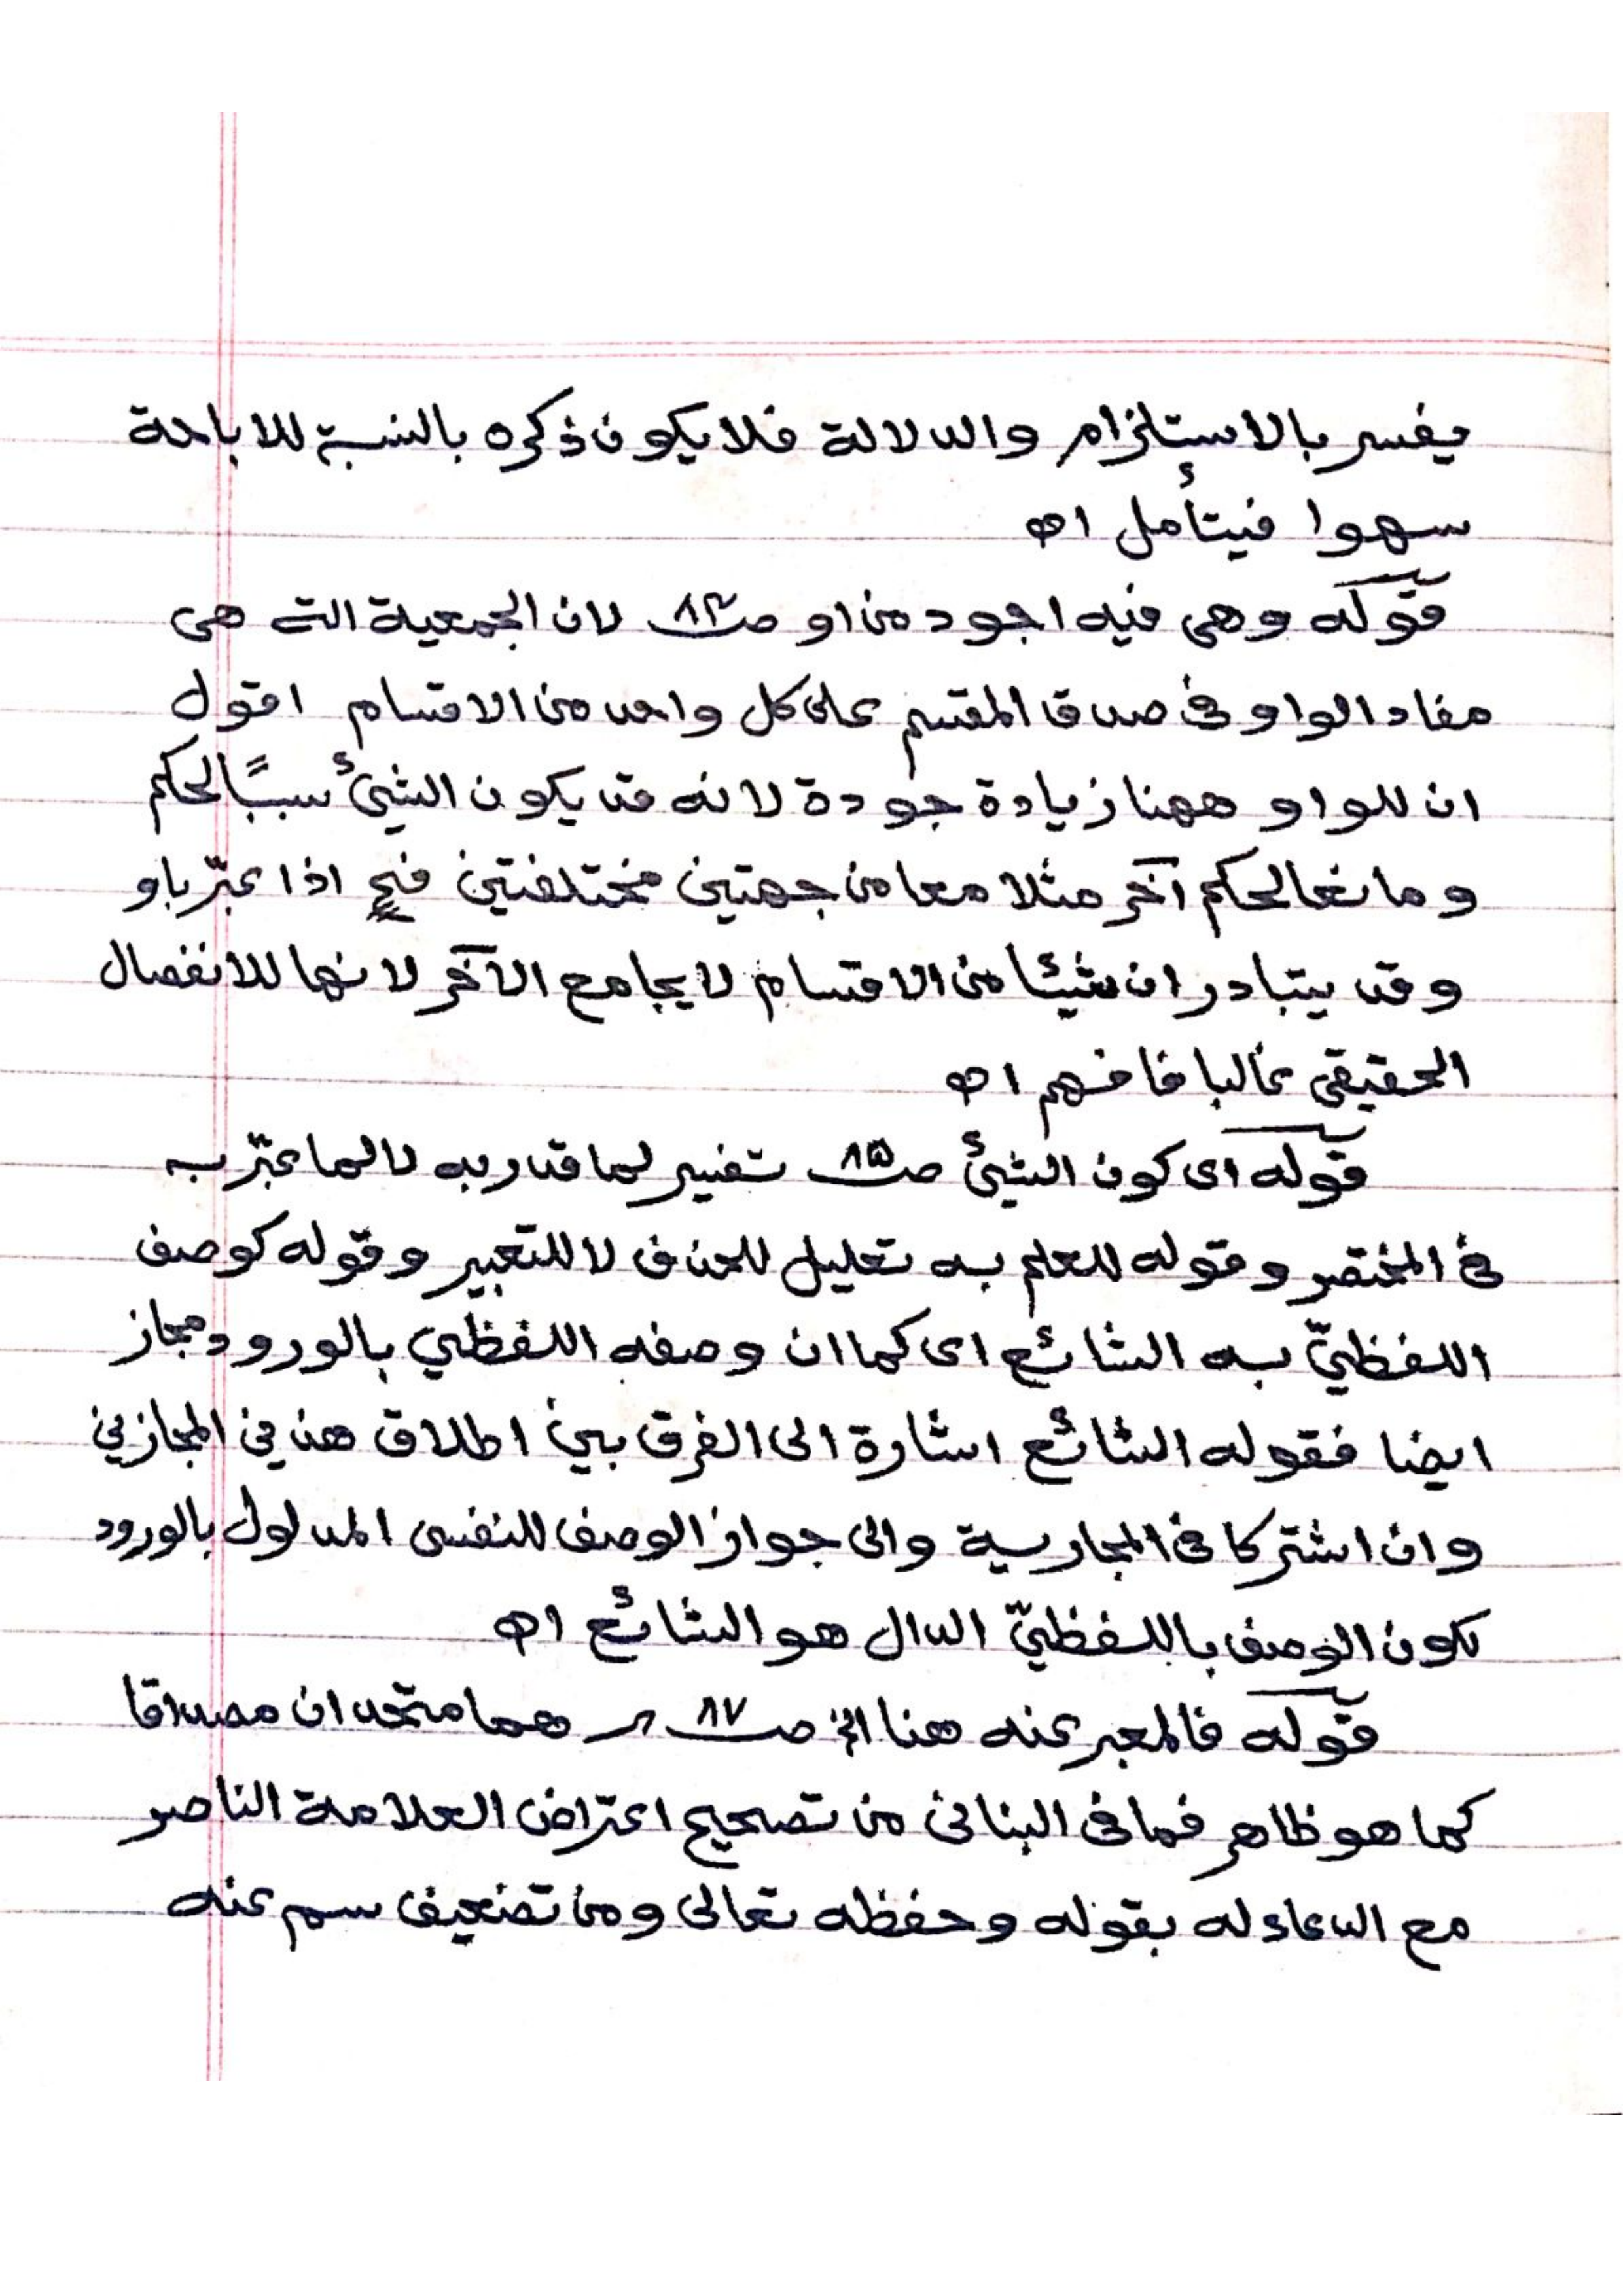 يفسر بالاستلزام والدلالة فلا يكون ذكره بالنسبة للاباحة
سهوا فيتأمل اه
قوله وهى فيه اجود من او صـ٨٣ لان الجمعية التى هى
مفاد الواو فى صدق المقسم على كل واحد من الاقسام اقول
ان للواو ههنا زيادة جودة لانه قد يكون الشيئ سببًا لحكم
ومانعا لحكم آخر مثلا معا من جهتين مختلفتين فح اذا عبّر باو
وقد يتبادر ان شيئا من الاقسام لا يجامع الآخر لانها للانفصال
الحقيقى غالبا فافهم اه
قوله اى كون الشيئ صـ٨٥ تفسير لما قدر به لا لما عبّر به
فى المختصر وقوله للعلم به تعليل للحذف لا للتعبير وقوله كوصف
اللفظيّ به الشائع اى كما ان وصفه اللفظي بالورود مجاز
ايضا فقوله الشائع اشارة الى الفرق بين اطلاق هذين المجازين
وان اشتركا فى المجازية والى جواز الوصف للنفسى المدلول بالورود
لكون الوصف باللفظيّ الدال هو الشائع اه
قوله فالمعبر عنه هنا الخ صـ٨٧ هما متحدان مصداقا
كما هو ظاهر فما فى البنانى من تصحيح اعتراض العلامة الناصر
مع الدعاء له بقوله وحفظه تعالى ومن تضعيف سم عنه